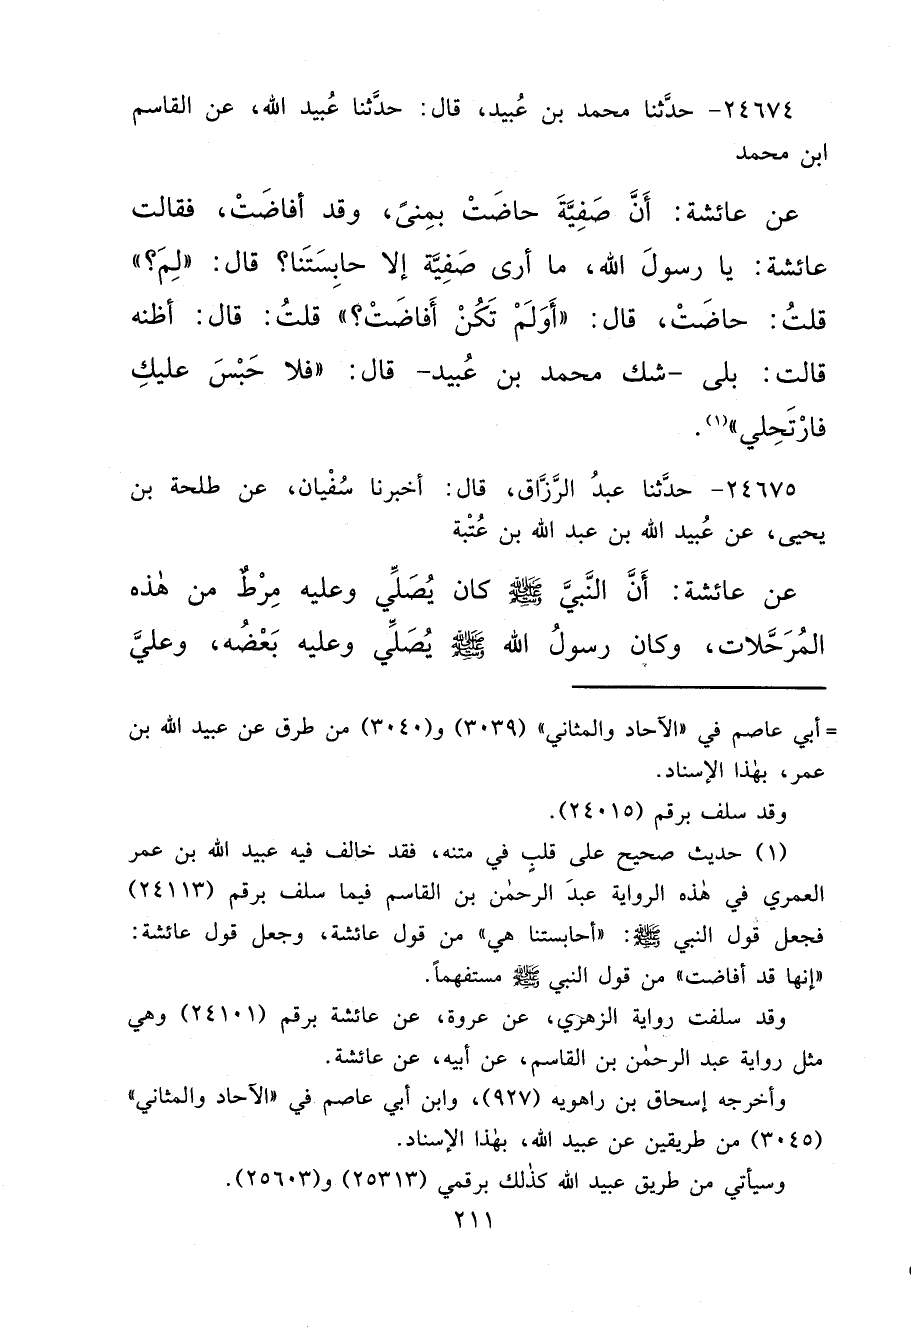 ٢٤٦٧٤- حدَّثنا محمد بن عُبيد، قال: حدَّثنا عُبيد الله، عن القاسم
ابن محمد
عن عائشة: أَنَّ صَفِيَّةَ حاضَتْ بمِنىً، وقد أفاضَتْ، فقالت
عائشة: يا رسولَ الله، ما أرى صَفِيَّة إلا حابِسَتَنا؟ قال: «لِمَ؟»
قلتُ: حاضَتْ، قال: «أَوَلَمْ تَكُنْ أَفاضَتْ؟» قلتُ: قال: أظنه
قالت: بلى -شك محمد بن عُبيد- قال: «فلا حَبْسَ عليكِ
فارْتَحِلي»(١).
٢٤٦٧٥- حدَّثنا عبدُ الرَّزَّاق، قال: أخبرنا سُفْيان، عن طلحة بن
يحيى، عن عُبيد الله بن عبد الله بن عُتْبة
عن عائشة: أَنَّ النَّبيَّ ﷺ كان يُصَلِّي وعليه مِرْطٌ من هٰذه
المُرَحَّلات، وكان رسولُ الله ﷺ يُصَلِّي وعليه بَعْضُه، وعليَّ
= أبي عاصم في «الآحاد والمثاني» (٣٠٣٩) و(٣٠٤٠) من طرق عن عبيد الله بن
عمر، بهٰذا الإسناد.
وقد سلف برقم (٢٤٠١٥).
(١) حديث صحيح على قلبٍ في متنه، فقد خالف فيه عبيد الله بن عمر
العمري في هٰذه الرواية عبدَ الرحمٰن بن القاسم فيما سلف برقم (٢٤١١٣)
فجعل قول النبي ﷺ: «أحابستنا هي» من قول عائشة، وجعل قول عائشة:
«إنها قد أفاضت» من قول النبي ﷺ مستفهماً.
وقد سلفت رواية الزهري، عن عروة، عن عائشة برقم (٢٤١٠١) وهي
مثل رواية عبد الرحمٰن بن القاسم، عن أبيه، عن عائشة.
وأخرجه إسحاق بن راهويه (٩٢٧)، وابن أبي عاصم في «الآحاد والمثاني»
(٣٠٤٥) من طريقين عن عبيد الله، بهٰذا الإسناد.
وسيأتي من طريق عبيد الله كذٰلك برقمي (٢٥٣١٣) و(٢٥٦٠٣).
٢١١